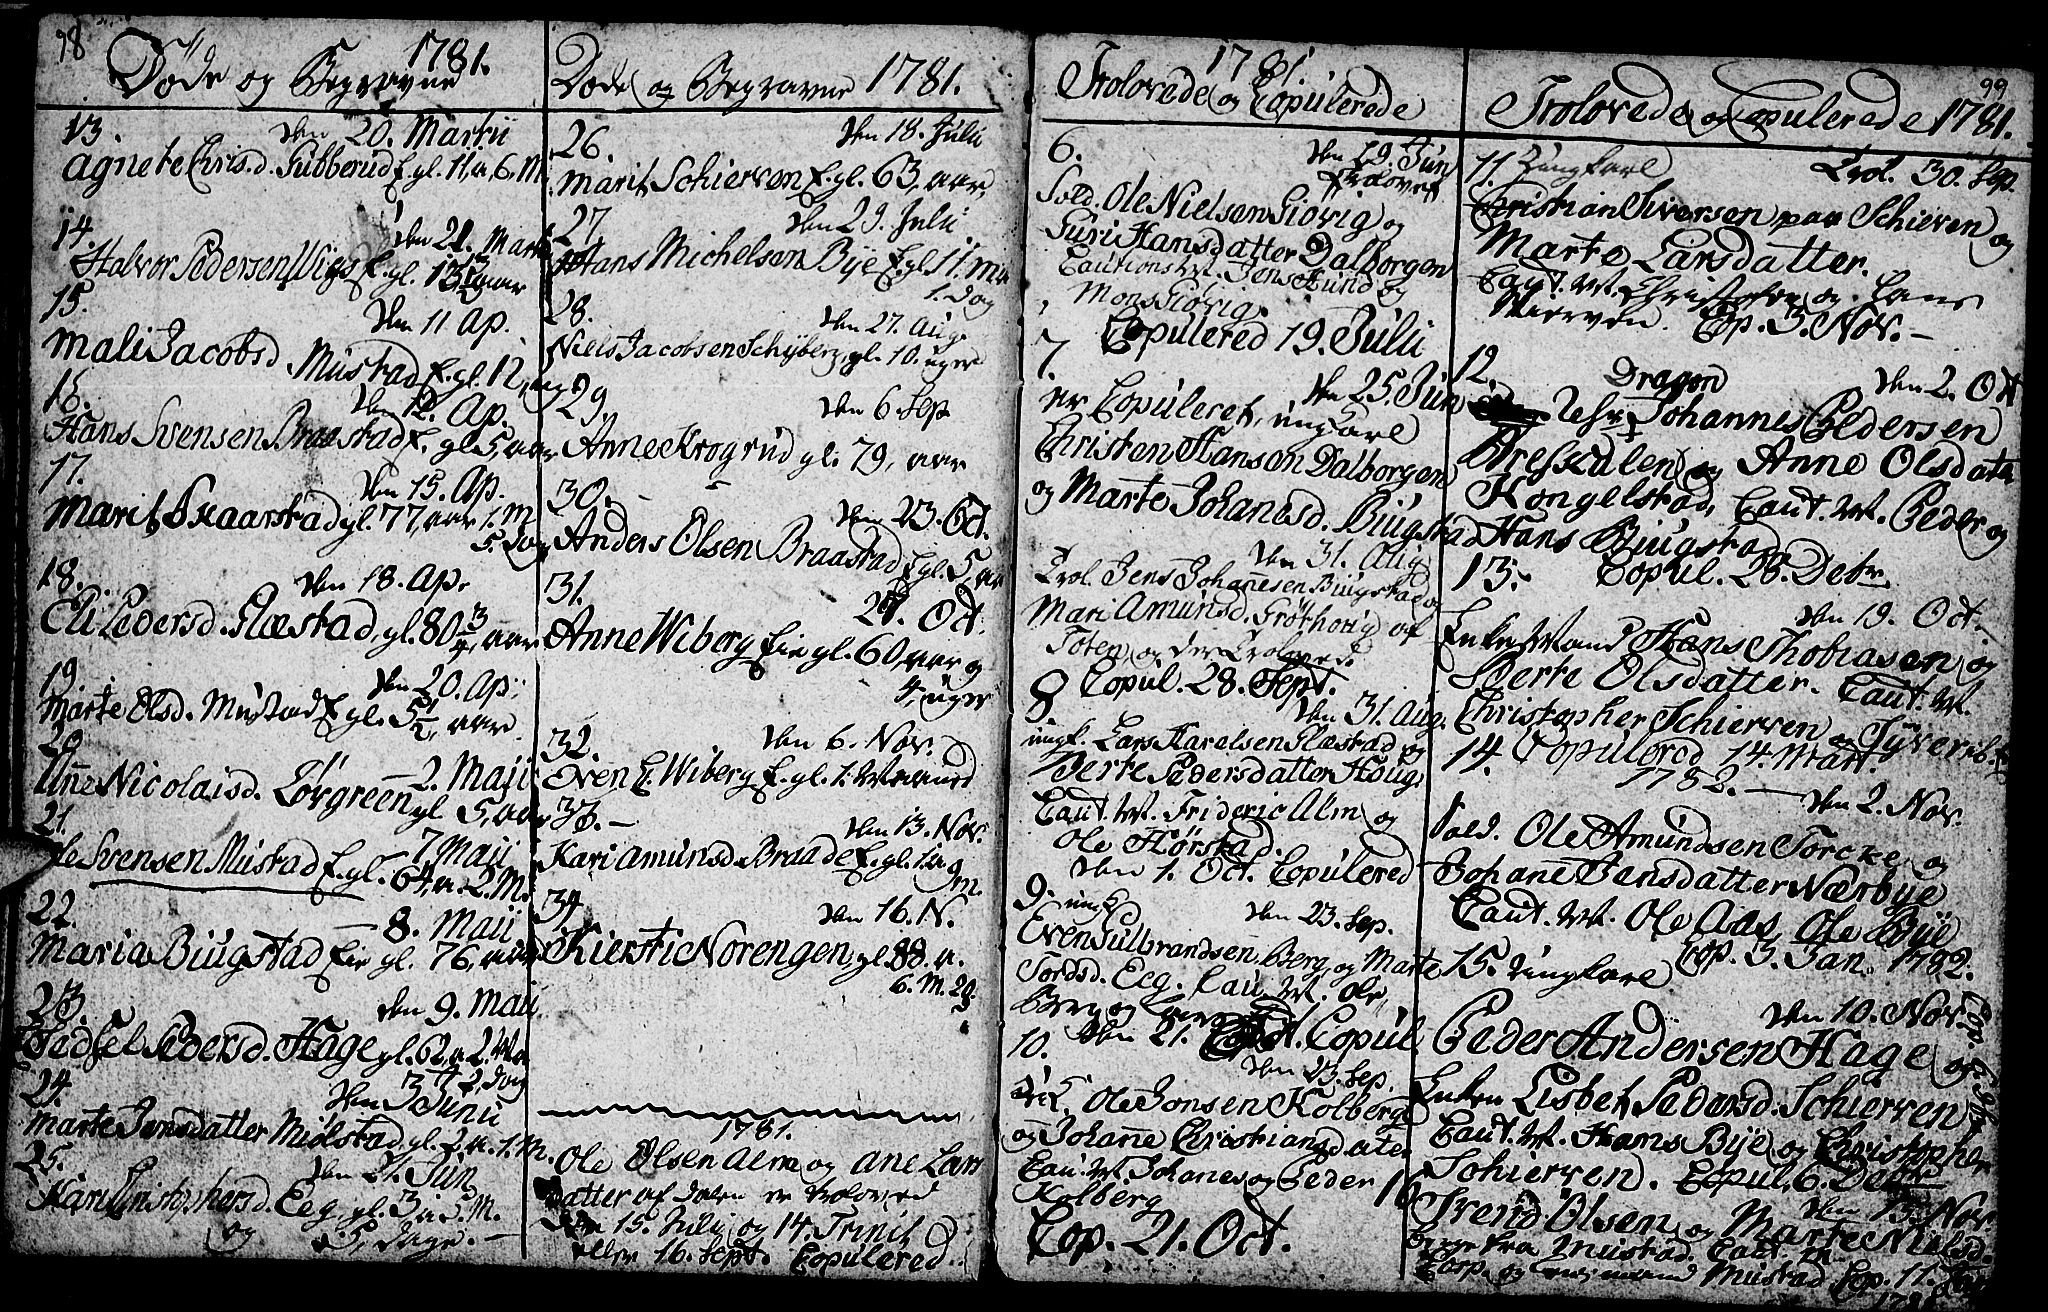 98
1781.
Døde og Begravne
13. den 20. Martii
Agnete Chrisd. Gubberud E. gl. 11, a, 6, M.
14. den 21. Marti
Halvor Pedersen Wigs E. gl. 13 aar
15. den 11 Ap.
Mali Jacobsd. Mustad E. gl. 12, ug.
16. den 12. Ap.
Hans Svensen Braastad E. gl. 5, aar
17. den 15. Ap.
Marit Skaarstad gl. 77, aar 1. M.
5. Dag
18. den 18. Ap.
Eli Pedersd. Glæstad, gl. 80 3/4, aar
19. den 20. Ap.
Marte Olsd. Mustad E gl. 5 1/2, aar.
20 2. Maji
Anne Nicolaisd. Løvgreen gl 5, aar
21. 7 Maji
Ole Svensen Mustad E. gl. 64, a. 2. M.
22. 8. Maij
Maria Biugstad Eie gl. 76, aar
23. den 9. Maii
Pedersd. Hage gl. 62, a. 2.
2, Dag
24. den 3 Junii
Marte Jensdatter Miølstad gl. a. 1. M.
25. den 21. Jun
Kari Christophersd. Eeg, gl. 3 M.
og 5, Dage.
Døde og Begravne 1781.
26. den 18. Julii
Marit Schierven E. gl. 63, aar
27 den 29. Julii.
Hans Michelsen Bye E gl 11. M
1. Dag
28. den 27. Aug.
Niels Jacobsen Schyberg, gl. 10. uger
29. den 6. Sep
Anne Krogrud gl. 79, aar
30. den 23. Oct.
Anders Olsen Braastad E gl. 5, aar
31. 27. Oct.
Anne Wiberg Eie gl. 60, aar og
4, uger
32. den 6. Nov.
Even E. Wiberg E. gl. 1. Maaned
33. den 13. Nov.
Kari Amunsd. Braade E. gl. 1 ag
M.
34 den 16. N.
Kiersti Norengen, gl. 88. a.
6. M.
1781.
Ole Olsen Alm og Ane Lars
datter af Dalen er troloved
den 15. Julii og 14. Trinit
eller 16. Sept. Copulered.
1781.
Trolovede og Copulerede
6. den 29. Jun
trolovet
Sold. Ole Nielsen Giøvig og
Guri Hansdatter Dalborgen
Cautions M. Jens Hund og
Mons Giøvig.
Copulered 19. Julii
7. den 25. Jun
er Copuleret, ungkarl
Christen Hansen Dalborgen
og Marte Johanesd. Biugstad
den 31. Aug
Trol. Jens Johanesen Biugstad og
Mari Amunsd. af
Toten, og der Trolovede
8. Copul. 28. Sept.
den 31. Aug.
ungk. Lars Karelsen Glæstad og
Berte Pedersdatter Houg
Caut. M. Frideric Alm og
Ole Hørstad.
den 1. Oct. Copulered
9. ungk den 23. Sep.
Even Gulbrandsen Berg, og Marte
Tordsd. Eeg. Cau. M. Ole
Berg og
10. den 21. Oct. Copul
den 23. Sep.
Ole Jonsen Kolberg
og Johanne Christiansdater
Cau. M. Johanes og Peder
Kolberg
Cop. 21. Oct.
99
Trolovede og Copulerede 1781.
11. Ungkarl Trol. 30. Sep.
Christian Iversen paa Schierven og
Marte Larsdatter.
Caut. M. og Hans
Schierven. Cop. 3. Nov.
12. Dragon den 2. Oct
Johannes Pedersen
og Anne Olsdater
Kongelstad, Caut. M. Peder og
Hans Biugstad
13. Copul. 28. Debr
den 19. Oct.
Enke Mand Hans Thobiasen og
Berte Olsdatter. Caut. M.
Christopher Schierven og
14. Copulered 14. Mart.
1782. den 2. Nov.
Sold. Ole Amundsen Torcke og
Johane Jensdatter Nærbye
Caut. M. Ole Aas, Ole Bye
Cop. 3. Jan. 1782.
15. Ungkarl
den 10. Nov.
Peder Andersen Hage og
Enken Lisbet Pedersd. Schierven
Caut. M. Hans Bye og Christopher
Schierven. Copul. 6. Debr
16 den 13. Nov.
Trend Olsen og Marte Nielsd.
fra Mustad. Caut.
og Mustad Cop. 11.